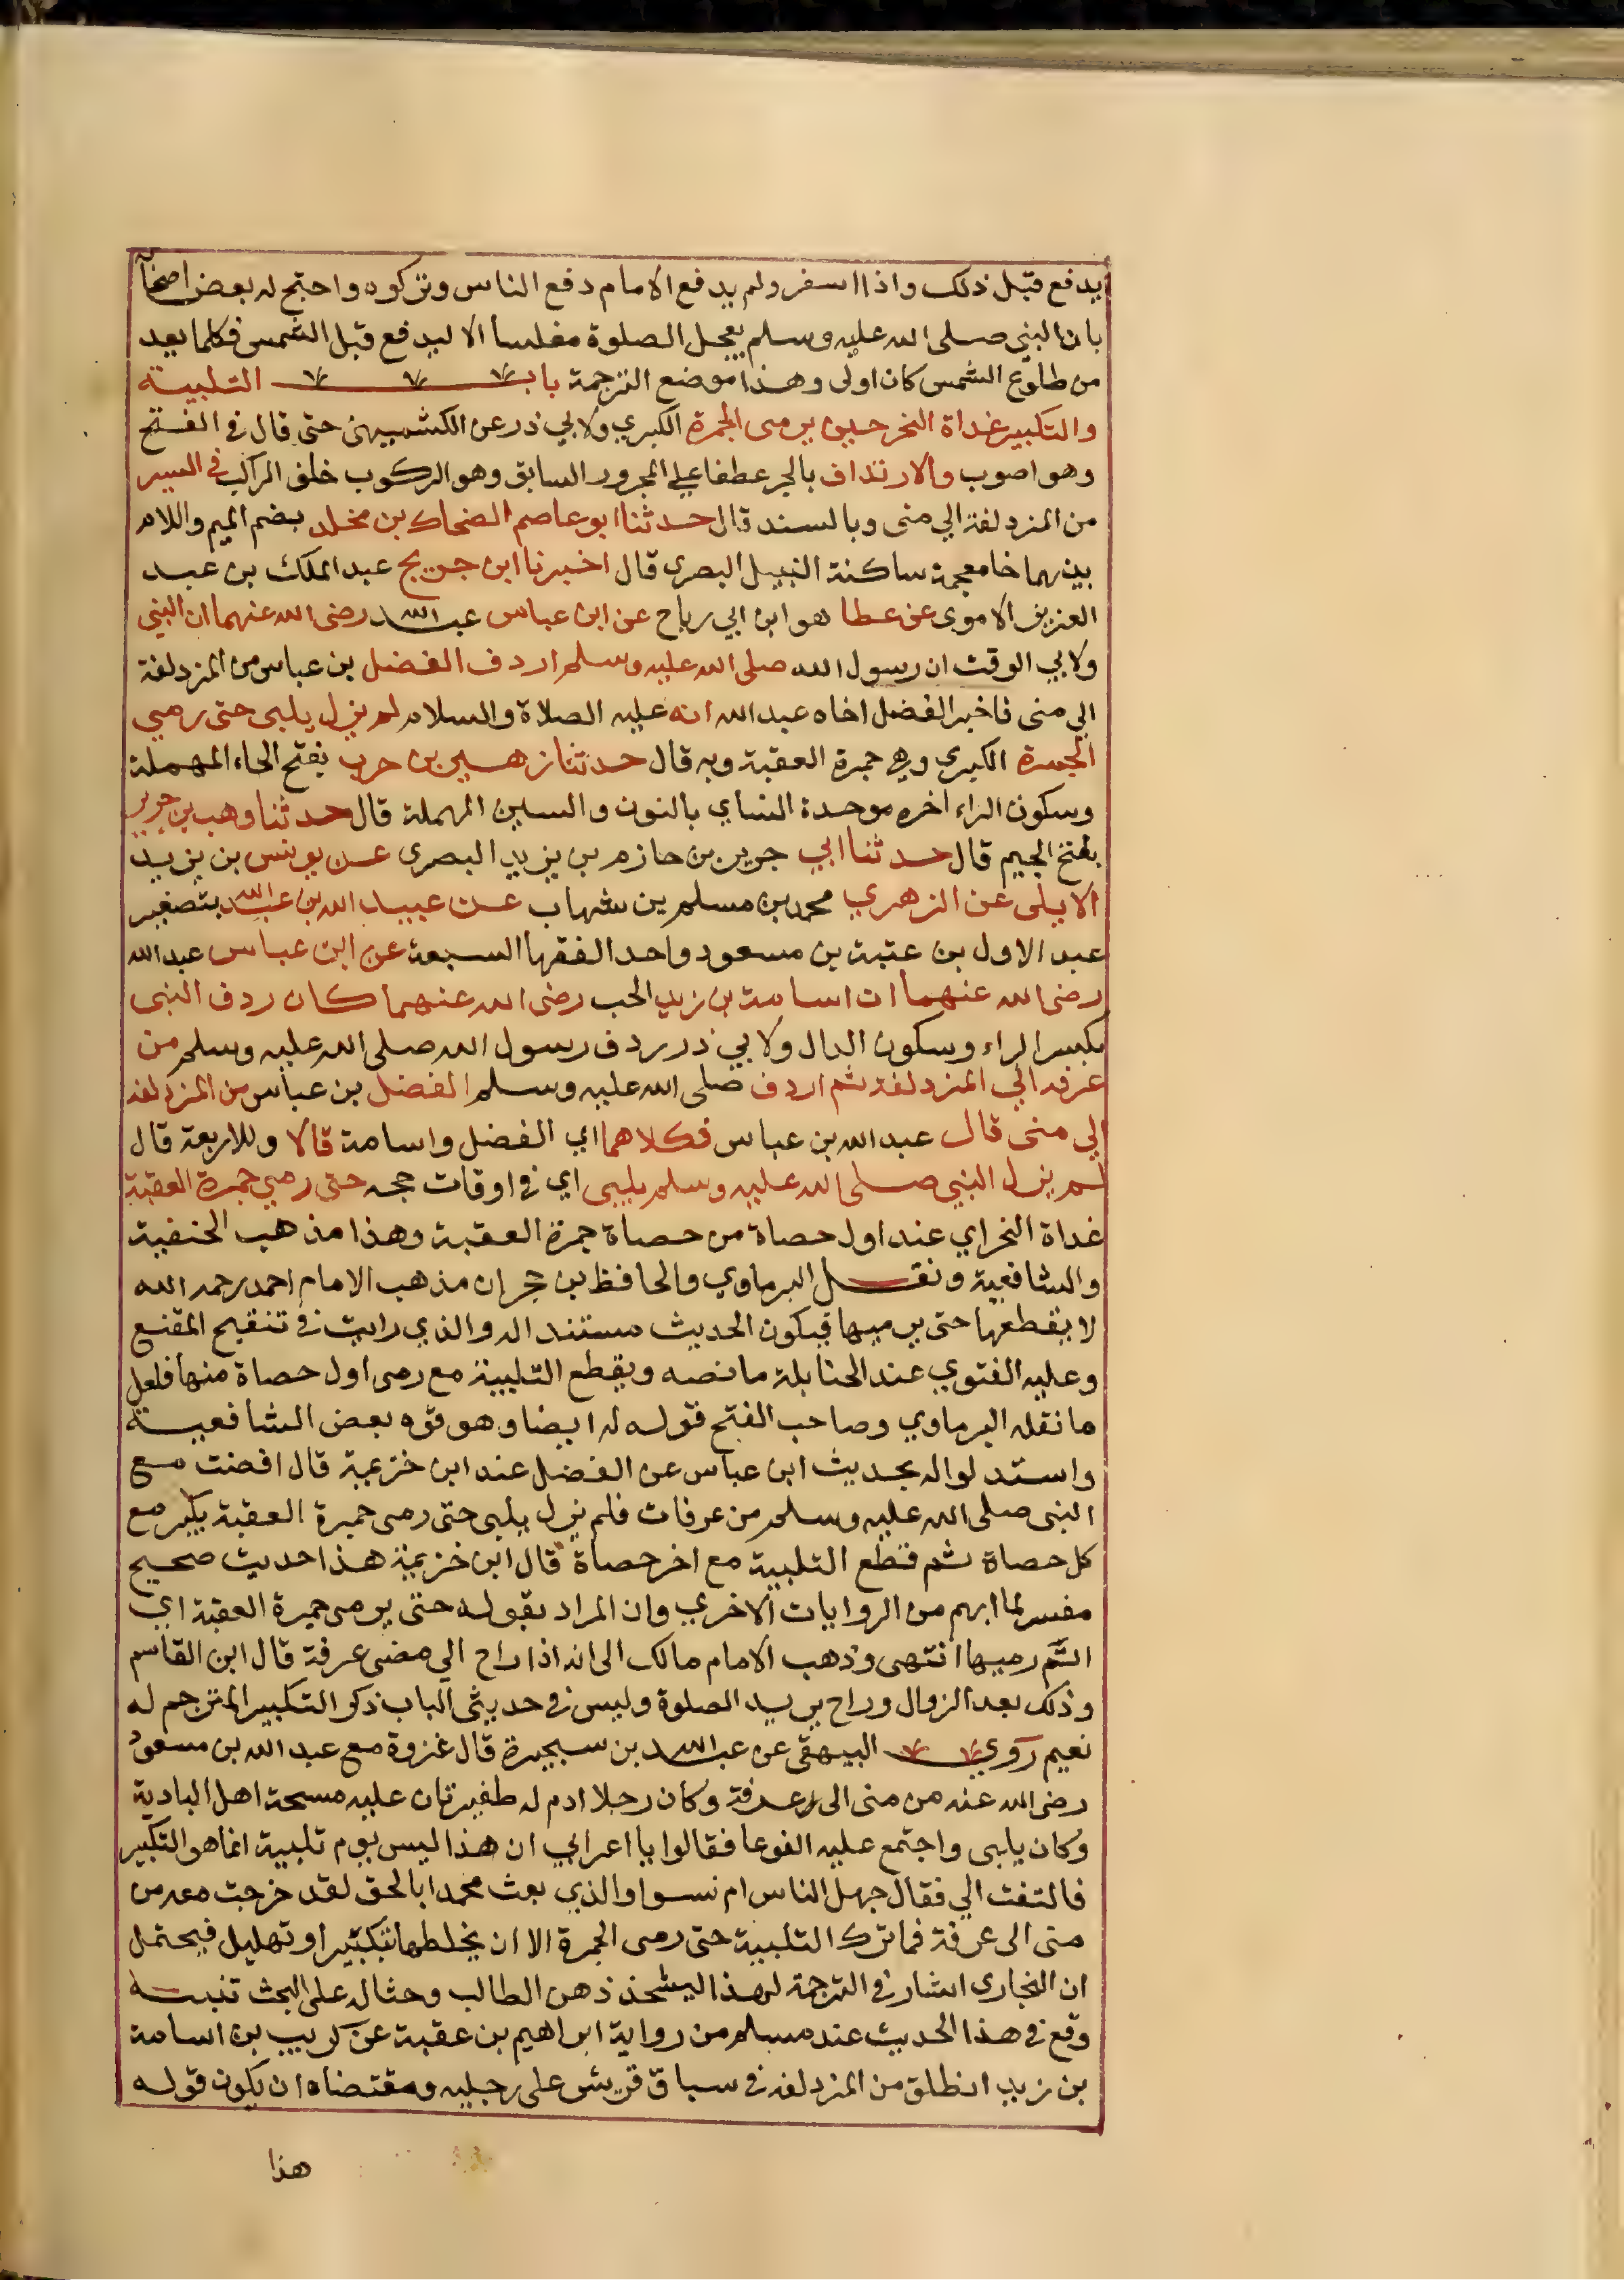 يدفع قبل ذلك واذا اسفر ولم يدفع الامام دفع الناس وتركوه واحتج له بعض اصحا
بان النبي صلى الله عليه وسلم يعجل الصلوة مغلسا الا ليدفع قبل الشمس فكلما بعد
من طلوع الشمس كان اولى وهذا موضع الترجمة باب التلبية
والتكبير غداة النحر حين يرمى الجمرة الكبري ولابي ذر عن الكشميهني حتى قال في الفتح
وهو اصوب والارتداف بالجر عطفا على المجرور السابق وهو الركوب خلف الراكب في السير
من المزدلفة الي منى وبالسند قال حدثنا ابو عاصم الضحاك بن مخلد بضم الميم واللام
بينهما خا معجمة ساكنة النبيل البصرى قال اخبرنا ابن جريج عبد الملك بن عبد
العزيز الاموى عن عطا هو ابن ابي رباح عن ابن عباس عبد الله رضى الله عنهما ان النبي
ولابي الوقت ان رسول الله صلى الله عليه وسلم اردف الفضل بن عباس من المزدلفة
الي منى فاخبر الفضل اخاه عبد الله انه عليه الصلاة والسلام لم يزل يلبى حتى رمي
الجمرة الكبري وهي جمرة العقبة وبه قال حدثنا زهير بن حرب بفتح الحاء المهملة
وسكون الراء اخره موحدة النساي بالنون والسين المهملة قال حدثنا وهب بن جرير
بفتح الجيم قال حدثنا ابي جرير بن حازم بن يزيد البصرى عن يونس بن يزيد
الايلى عن الزهري محمد بن مسلم بن شهاب عن عبيد الله بن عبد الله بتصغير
عبد الاول بن عتبة بن مسعود واحد الفقها السبعة عن ابن عباس عبد الله
رضى الله عنهما ان اسامة بن زيد الحب رضى الله عنهما كان ردف النبى
بكسر الراء وسكون الدال ولابي ذر ردف رسول الله صلى الله عليه وسلم من
عرفه الي المزدلفة ثم اردف صلى الله عليه وسلم الفضل بن عباس من المزدلفه
الي منى قال عبد الله بن عباس فكلاهما اي الفضل واسامة قالا وللاربعة قال
لم يزل النبي صلى الله عليه وسلم يلبى اي في اوقات حجه حتى رمي جمرة العقبة
غداة النحر اي عند اول حصاة من حصاة جمرة العقبة وهذا مذهب الحنفية
والشافعية ونقل البرماوي والحافظ بن حجر ان مذهب الامام احمد رحمه الله
لا يقطعها حتى يرميها فيكون الحديث مستندا له والذي رايت في تنقيح المقنع
وعليه الفتوي عند الحنابلة ما نصه ويقطع التلبية مع رمى اول حصاة منها فلعل
ما نقله البرماوي وصاحب الفتح قوله له ايضا وهو قوه بعض الشافعية
واستدلوا له بحديث ابن عباس عن الفضل عند ابن خزيمة قال افضت مع
النبى صلى الله عليه وسلم من عرفات فلم يزل يلبى حتى رمى جمرة العقبة يكبر مع
كل حصاة ثم قطع التلبية مع اخر حصاة قال ابن خزيمة هذا حديث صحيح
مفسر لما ابهم من الروايات الاخري وان المراد بقوله حتى يرمى جمرة العقبة اي
اتم رميها انتهى وذهب الامام مالك الى انه اذا راح الي مضى عرفة قال ابن القاسم
وذلك بعد الزوال وراح يريد الصلوة وليس في حديثى الباب ذكر التكبير المترجم له
نعيم روي البيهقى عن عبد الله بن سبجيرة قال غزوة مع عبد الله بن مسعود
رضى الله عنه من منى الى عرفة وكان رجلا ادم له طفيرتان عليه مسحة اهل البادية
وكان يلبى واجتمع عليه الغوعا فقالوا يا اعرابي ان هذا ليس يوم تلبية انما هو التكبير
فالتفت الي فقال جهل الناس ام نسوا والذي بعث محمدا بالحق لقد خرجت معه من
منى الى عرفة فما ترك التلبية حتى رمى الجمرة الا ان يخلطها بتكبير او تهليل فيحتمل
ان البخارى اشار في الترجمة لهذا ليشحذ ذهن الطالب وحثا له على البحث تنبيه
وقع في هذا الحديث عند مسلم من رواية ابراهيم بن عقبة عن كريب بن اسامة
بن زيد انطلق من المزدلفه في سباق قريش على رجليه ومقتضاه ان يكون قوله
هذا